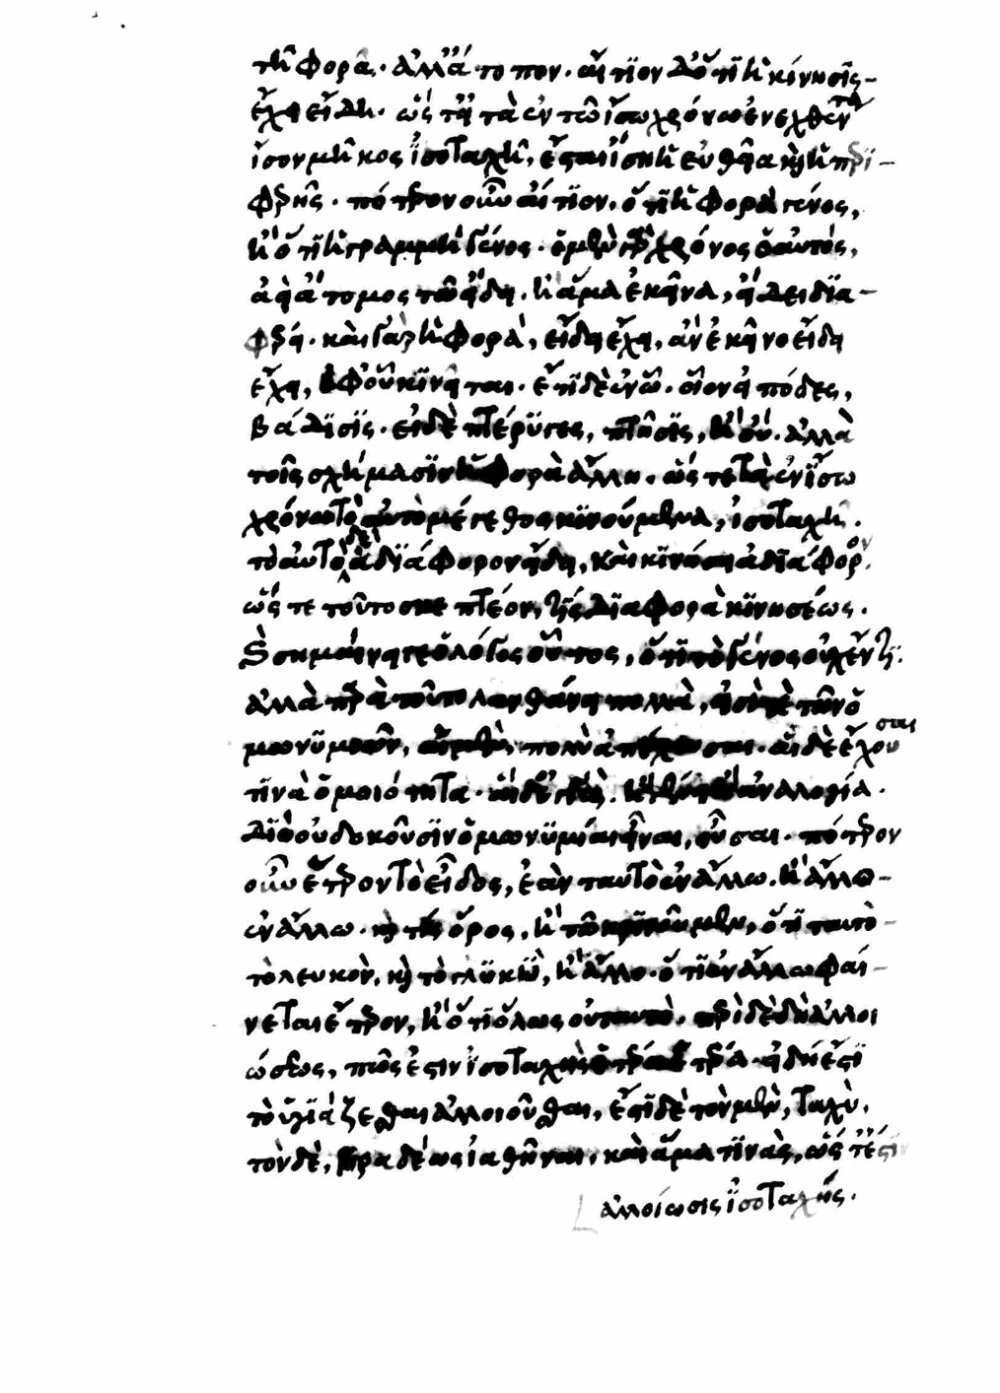 τῆ φορᾷ. ἀλλ' ἄτοπον. αἴτιον δ' ὅτι ἡ κίνησις
ἔχει εἴδη. ὥστε τὰ ἐν τῶ ἴσω χρόνω ἐνεχθέντα
ἴσον μῆκος ἰσοταχῆ, ἔσται ἴση ἡ εὐθεῖα καὶ ἡ περι-
φερής. πότερον οὖν αἴτιον, ὅτι ἡ φορὰ γένος,
ἢ ὅτι ἡ γραμμὴ γένος. ὁ μὲν γὰρ χρόνος ὁ αὐτὸς,
ἀεὶ ἄτομος τῶ εἴδει. ἢ ἅμα ἐκεῖνα, εἴδει δια-
φέρει. καὶ γὰρ ἡ φορὰ, εἴδη ἔχει, ἂν ἐκεῖνο εἴδη
ἔχη, ἐφ' οὗ κινεῖται. ἔτι δὲ ἐν ὧ. οἷον εἰ πόδες,
βάδισις. εἰ δὲ πτέρυγες, πτῆσις, ἢ οὔ. ἀλλὰ
τοῖς σχήμασιν ἡ φορὰ ἄλλη. ὥστε τὰ ἐν ἴσω
χρόνω τὸ αὐτὸ μέγεθος κινούμενα, ἰσοταχῆ.
τὸ αὐτὸ δὲ ἀδιάφορον εἴδει, καὶ κινήσει ἀδιάφορον.
ὥστε τοῦτο σκεπτέον, τίς διαφορὰ κινήσεως.
καὶ σημαίνει ὁ λόγος οὗτος, ὅτι τὸ γένος οὐχ ἕν τι.
ἀλλὰ παρὰ τοῦτο λανθάνει πολλὰ, εἰσί τε τῶν ὁ
μωνυμιῶν, αἱ μὲν, πολὺ ἀπέχουσαι. αἱ δὲ ἔχουσαι
τινὰ ὁμοιότητα. αἱ δ' ἐγγὺς. ἢ γένει ἢ ἀναλογία.
διὸ οὐ δοκοῦσιν ὁμωνυμίαι εἶναι, οὖσαι. πότερον
οὖν ἕτερον τὸ εἶδος, ἐὰν ταυτὸ ἐν ἄλλω. ἢ ἄλλο
ἐν ἄλλω. καὶ τίς ὅρος, ἢ τῶ κρινοῦμεν, ὅτι ταυτὸ
τὸ λευκὸν, καὶ τὸ γλυκὺ, ἢ ἄλλο. ὅτι ἐν ἄλλω φαί-
νεται ἕτερον, ἢ ὅτι ὅλως οὐ ταυτὸ. περὶ δὲ δὴ ἀλλοι
ώσεως, πῶς ἔστιν ἰσοταχὴς ἑτέρα ἑτέρα. εἰ δή ἐστι
τὸ ὑγιάζεσθαι ἀλλοιοῦσθαι, ἔστι δὲ τὸν μὲν, ταχὺ,
τὸν δὲ, βραδέως ἰαθῆναι, καὶ ἅμα τινὰς, ὥστ' ἔστιν
ἀλλοίωσις ἰσοταχής.